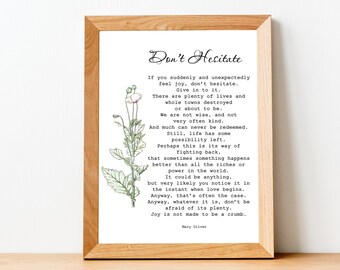 Don't Hesitate
If you suddenly and unexpectedly
feel joy, don't hesitate.
Give in to it.
There are plenty of lives and
whole towns destroyed
or about to be.
We are not wise, and not
very often kind.
And much can never be redeemed.
Still, life has some
possibility left.
Perhaps this is its way of
fighting back,
that sometimes something happens
better than all the riches or
power in the world.
It could be anything,
but very likely you notice it in
the instant when love begins.
Anyway, that's often the case.
Anyway, whatever it is, don't be
afraid of its plenty.
Joy is not made to be a crumb.
Mary Oliver